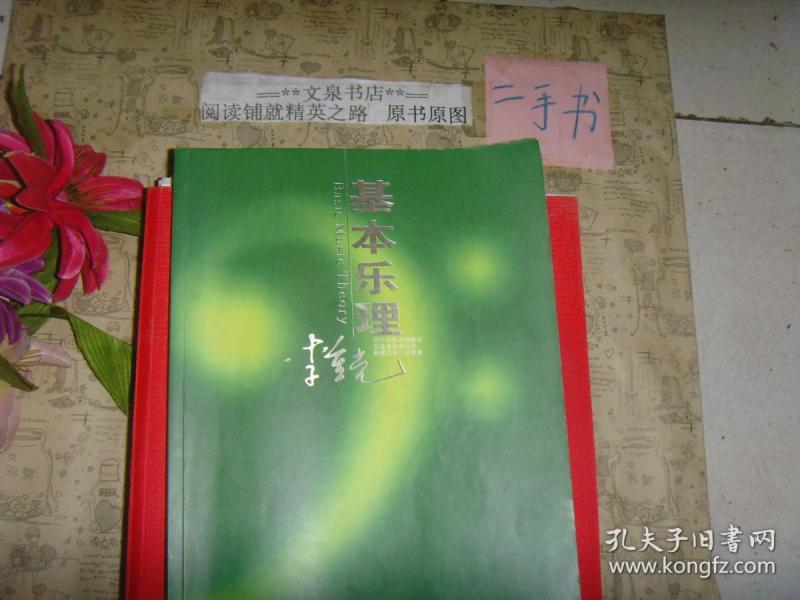 ==**文泉书店**==
阅读铺就精英之路 原书原图
二手书
基本乐理
Basic Music Theory
李重光
孔夫子旧书网
www.kongfz.com